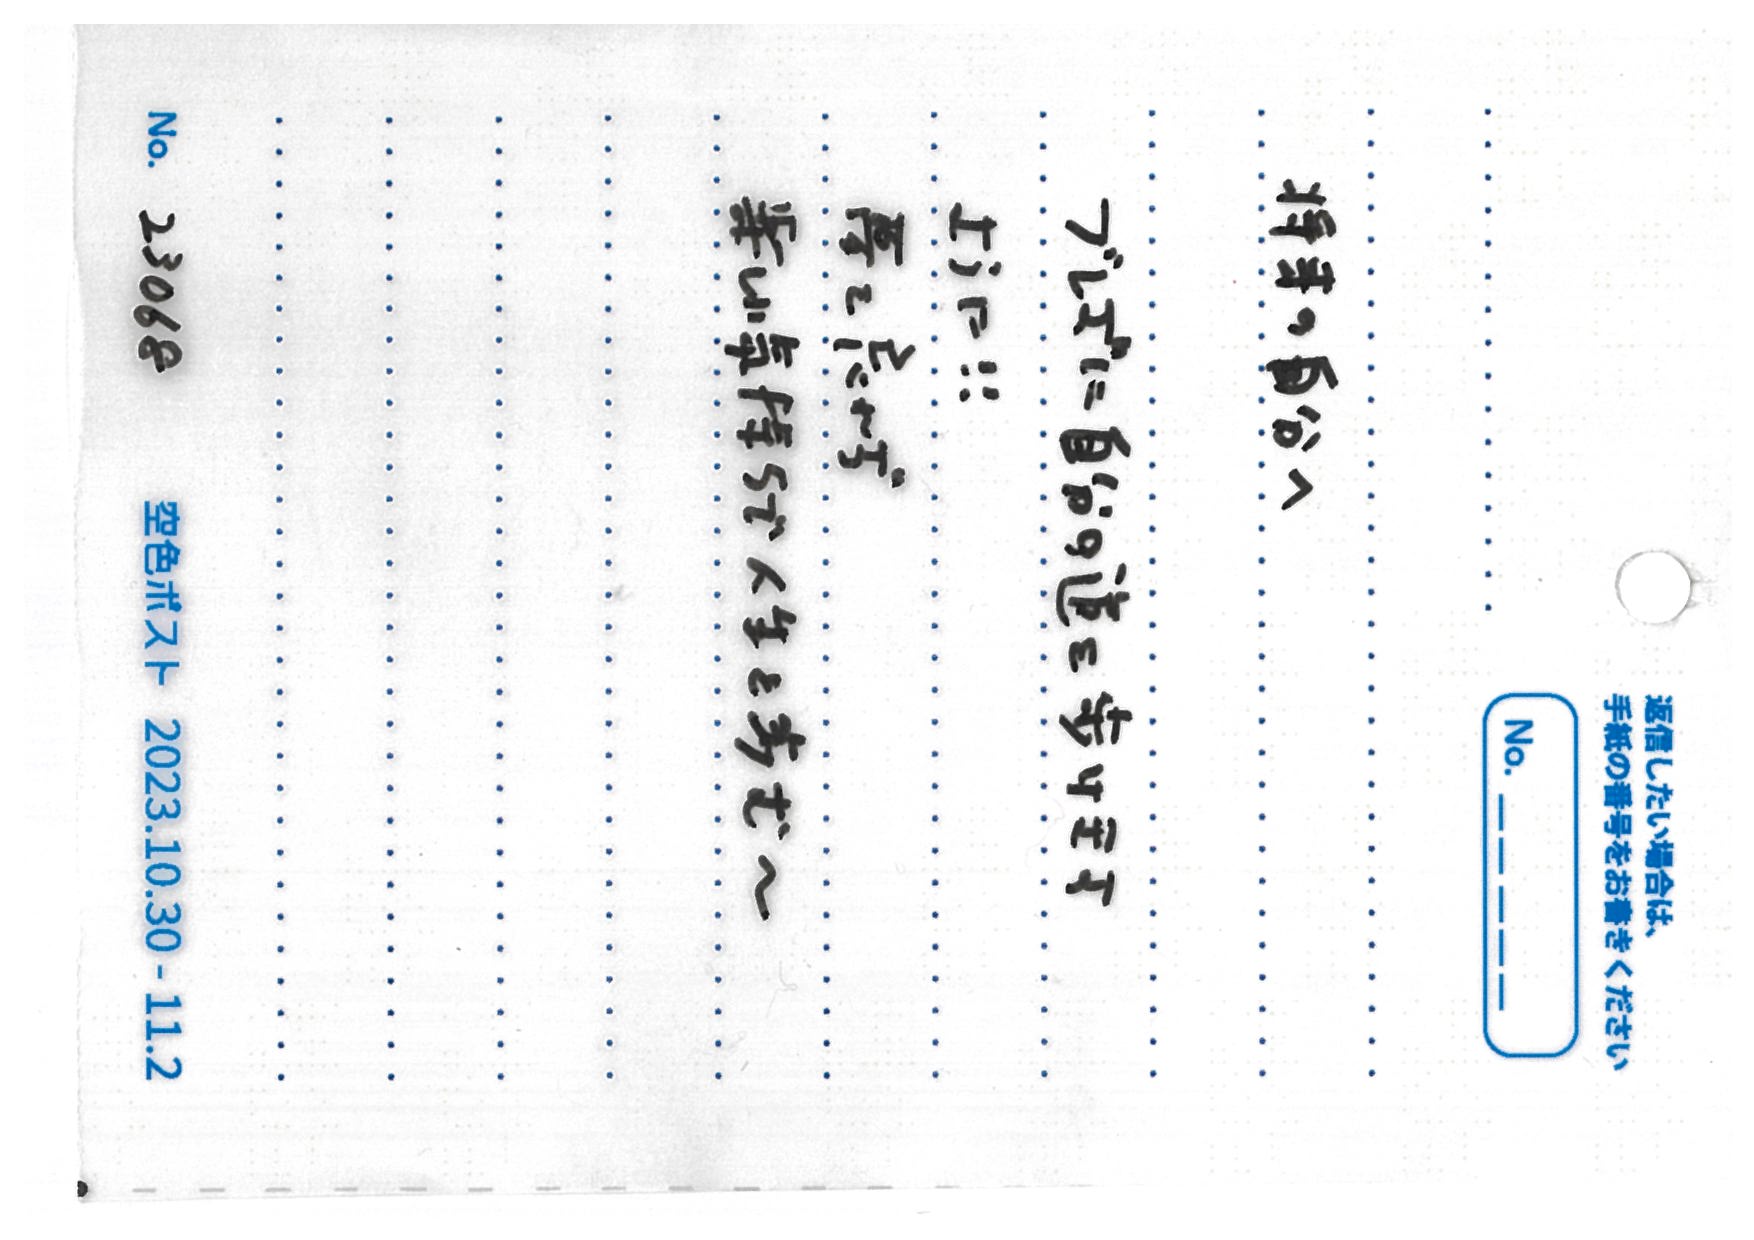 返信したい場合は、
手紙の番号をお書きください
No. _ _ _ _ _
将来の自分へ
ブレずに自分の道を歩けます
ように!!
夢を忘れず
楽しい気持ちで人生を歩む〜
No. 23068 空色ポスト 2023.10.30 - 11.2